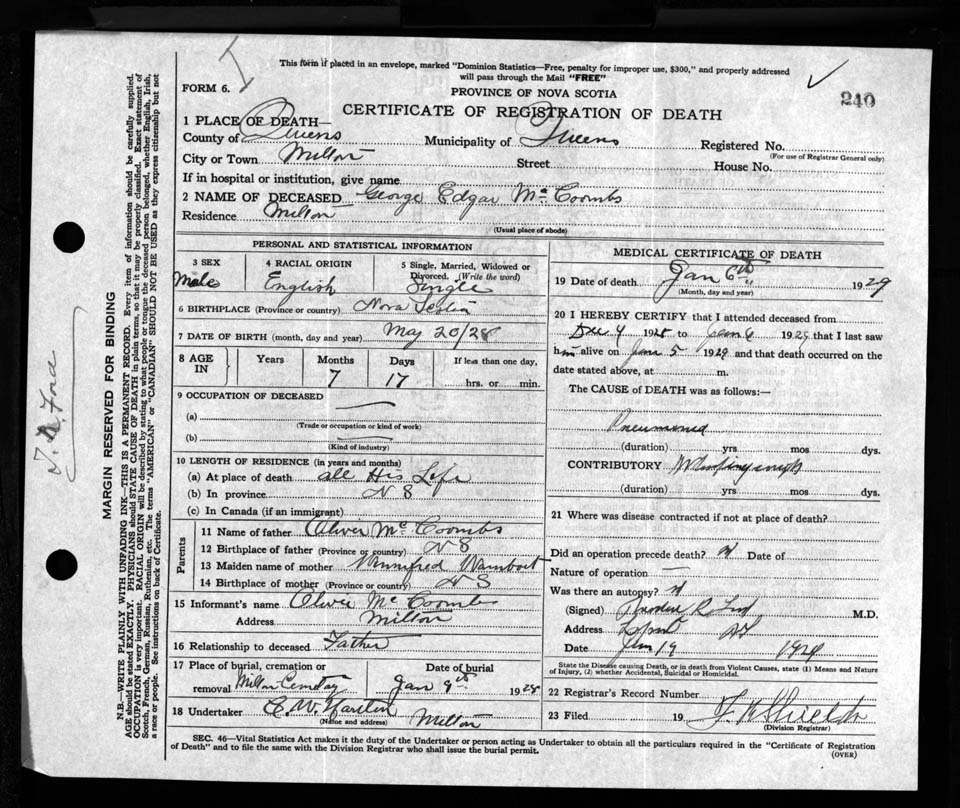 This form if placed in an envelope, marked "Dominion Statistics—Free, penalty for improper use, $300," and properly addressed
will pass through the Mail "FREE"
FORM 6.
PROVINCE OF NOVA SCOTIA
240
CERTIFICATE OF REGISTRATION OF DEATH
1 PLACE OF DEATH—
County of Queens Municipality of Queens Registered No.
(For use of Registrar General only)
City or Town Milton Street House No.
If in hospital or institution, give name
2 NAME OF DECEASED George Edgar Mc Coombs
Residence Milton
(Usual place of abode)
PERSONAL AND STATISTICAL INFORMATION
3 SEX 4 RACIAL ORIGIN 5 Single, Married, Widowed or
Divorced. (Write the word)
Male English Single
6 BIRTHPLACE (Province or country) Nova Scotia
7 DATE OF BIRTH (month, day and year) May 20/28
8 AGE IN Years Months Days If less than one day,
7 17 hrs. or min.
9 OCCUPATION OF DECEASED
(a)
(Trade or occupation or kind of work)
(b)
(Kind of industry)
10 LENGTH OF RESIDENCE (in years and months)
(a) At place of death all His Life
(b) In province N S
(c) In Canada (if an immigrant)
Parents
11 Name of father Oliver Mc Coombs
12 Birthplace of father (Province or country) N S
13 Maiden name of mother Winnifred
14 Birthplace of mother (Province or country) N S
15 Informant's name Oliver Mc Coombs
Address Milton
16 Relationship to deceased Father
17 Place of burial, cremation or Date of burial
removal Milton Cemetery Jan 9th 1929
18 Undertaker C. W.
(Name and address) Milton
MEDICAL CERTIFICATE OF DEATH
19 Date of death Jan 6th 1929
(Month, day and year)
20 I HEREBY CERTIFY that I attended deceased from
Dec 4 1928 to Jan 6 1929 that I last saw
him alive on Jan 5 1929 and that death occurred on the
date stated above, at m.
The CAUSE of DEATH was as follows:—
Pneumonia
(duration) yrs mos dys.
CONTRIBUTORY Whooping cough
(duration) yrs mos dys.
21 Where was disease contracted if not at place of death?
Did an operation precede death? Date of
Nature of operation —
Was there an autopsy?
(Signed) M.D.
Address
Date Jan 19 1929
State the Disease causing Death, or in death from Violent Causes, state (1) Means and Nature
of Injury, (2) whether Accidental, Suicidal or Homicidal.
22 Registrar's Record Number
23 Filed 19
(Division Registrar)
SEC. 46—Vital Statistics Act makes it the duty of the Undertaker or person acting as Undertaker to obtain all the particulars required in the "Certificate of Registration
of Death" and to file the same with the Division Registrar who shall issue the burial permit.
(OVER)
MARGIN RESERVED FOR BINDING
N.B.—WRITE PLAINLY WITH UNFADING INK—THIS IS A PERMANENT RECORD. Every item of information should be carefully supplied.
AGE should be stated EXACTLY. PHYSICIANS should STATE CAUSE OF DEATH in plain terms, so that it may be properly classified. Exact statement of
OCCUPATION is very important. RACIAL ORIGIN will be described by stating to what people or tongue the deceased person belonged, whether English, Irish,
Scotch, French, German, Russian, Ruthenian, etc. The terms "AMERICAN" or "CANADIAN" SHOULD NOT BE USED as they express citizenship but not
a race or people. See instructions on back of Certificate.